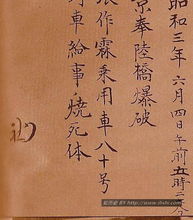 昭和三年六月四日午前五時
京奉陸橋爆破
張作霖乗用車八十号
列車給事ノ焼死体